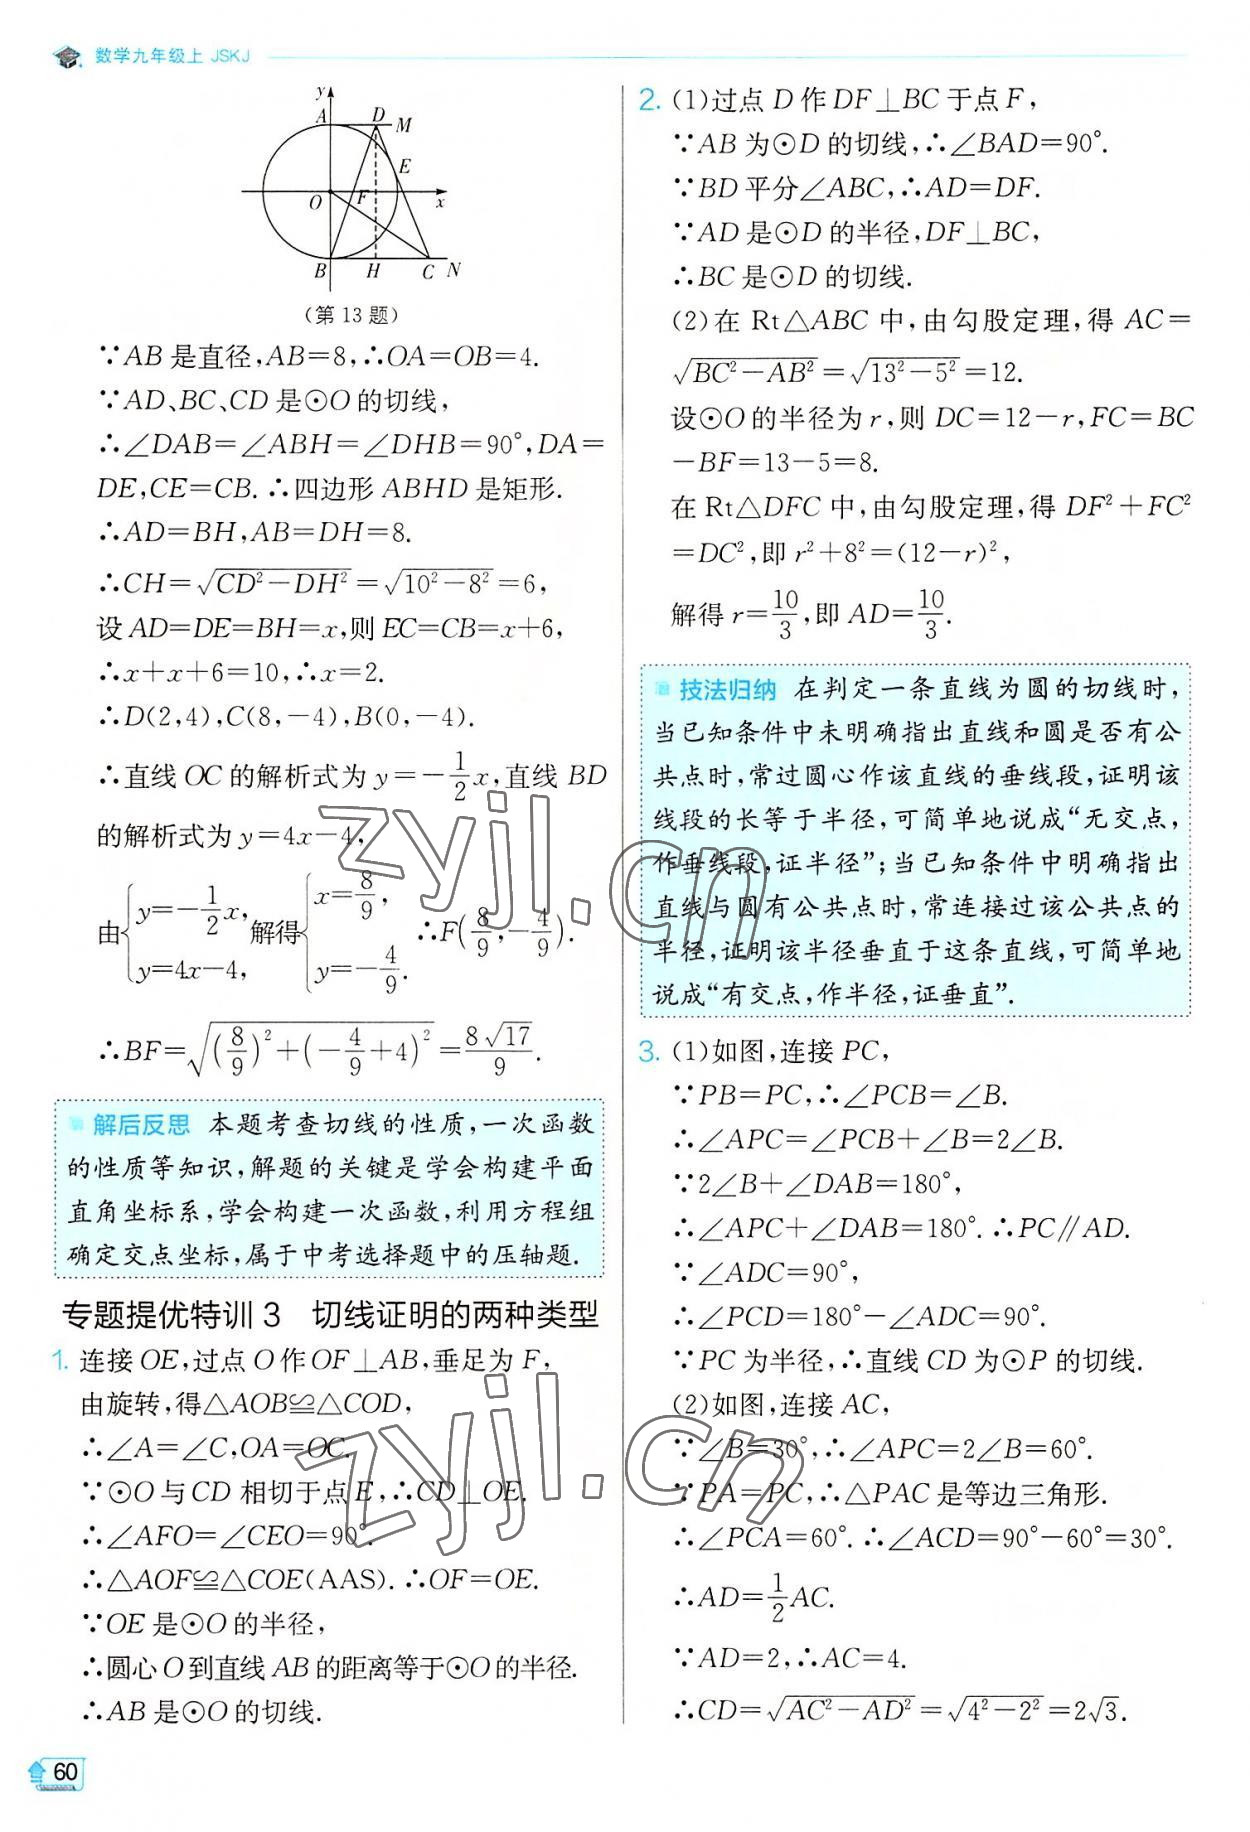 数学九年级上 JSKJ
y
A D M
E
O F x
B H C N
(第13题)
∵AB是直径,AB=8,∴OA=OB=4.
∵AD、BC、CD是⊙O的切线,
∴∠DAB=∠ABH=∠DHB=90°,DA=
DE,CE=CB.∴四边形ABHD是矩形.
∴AD=BH,AB=DH=8.
∴CH=√(CD²-DH²)=√(10²-8²)=6,
设AD=DE=BH=x,则EC=CB=x+6,
∴x+x+6=10,∴x=2.
∴D(2,4),C(8,-4),B(0,-4).
∴直线OC的解析式为y=-1/2x,直线BD
的解析式为y=4x-4,
由{y=-1/2x, y=4x-4, 解得{x=8/9, y=-4/9. ∴F(8/9,-4/9).
∴BF=√((8/9)²+(-4/9+4)²)=8√17/9.
解后反思 本题考查切线的性质,一次函数
的性质等知识,解题的关键是学会构建平面
直角坐标系,学会构建一次函数,利用方程组
确定交点坐标,属于中考选择题中的压轴题.
专题提优特训3 切线证明的两种类型
1. 连接OE,过点O作OF⊥AB,垂足为F,
由旋转,得△AOB≌△COD,
∴∠A=∠C,OA=OC.
∵⊙O与CD相切于点E,∴CD⊥OE.
∴∠AFO=∠CEO=90°.
∴△AOF≌△COE(AAS).∴OF=OE.
∵OE是⊙O的半径,
∴圆心O到直线AB的距离等于⊙O的半径.
∴AB是⊙O的切线.
2. (1)过点D作DF⊥BC于点F,
∵AB为⊙D的切线,∴∠BAD=90°.
∵BD平分∠ABC,∴AD=DF.
∵AD是⊙D的半径,DF⊥BC,
∴BC是⊙D的切线.
(2)在Rt△ABC中,由勾股定理,得AC=
√(BC²-AB²)=√(13²-5²)=12.
设⊙O的半径为r,则DC=12-r,FC=BC
-BF=13-5=8.
在Rt△DFC中,由勾股定理,得DF²+FC²
=DC²,即r²+8²=(12-r)²,
解得r=10/3,即AD=10/3.
技法归纳 在判定一条直线为圆的切线时,
当已知条件中未明确指出直线和圆是否有公
共点时,常过圆心作该直线的垂线段,证明该
线段的长等于半径,可简单地说成“无交点,
作垂线段,证半径”;当已知条件中明确指出
直线与圆有公共点时,常连接过该公共点的
半径,证明该半径垂直于这条直线,可简单地
说成“有交点,作半径,证垂直”.
3. (1)如图,连接PC,
∵PB=PC,∴∠PCB=∠B.
∴∠APC=∠PCB+∠B=2∠B.
∵2∠B+∠DAB=180°,
∴∠APC+∠DAB=180°.∴PC∥AD.
∵∠ADC=90°,
∴∠PCD=180°-∠ADC=90°.
∵PC为半径,∴直线CD为⊙P的切线.
(2)如图,连接AC,
∵∠B=30°,∴∠APC=2∠B=60°.
∵PA=PC,∴△PAC是等边三角形.
∴∠PCA=60°.∴∠ACD=90°-60°=30°.
∴AD=1/2AC.
∵AD=2,∴AC=4.
∴CD=√(AC²-AD²)=√(4²-2²)=2√3.
zyjl.cn
zyjl.cn
60